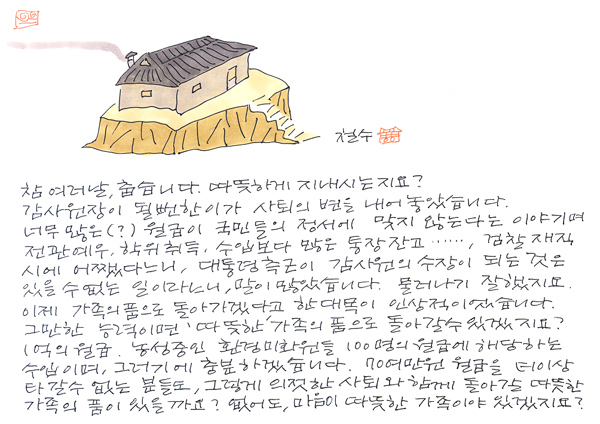 철수
참 여러날, 춥습니다. 따뜻하게 지내시는지요?
감사원장이 될뻔한이가 사퇴의 변을 내어 놓았습니다.
너무 많은(?) 월급이 국민들의 정서에 맞지 않는다는 이야기며
전관예우, 학위취득, 수입보다 많은 통장잔고……, 검찰 재직
시에 어쨌다느니, 대통령측근이 감사원의 수장이 되는 것은
있을 수 없는 일이라느니, 말이 많았습니다. 물러나기 잘했지요.
이제 가족의 품으로 돌아가겠다고 한 대목이 인상적이었습니다.
그만한 능력이면 '따뜻한' 가족의 품으로 돌아갈수 있겠지요?
1억의 월급. 농성중인 환경미화원들 100명의 월급에 해당하는
수입이며, 그러기에 충분하겠습니다. 70여만원 월급을 더이상
타갈수 없는 분들도, 그렇게 의젓한 사퇴와 함께 돌아갈 따뜻한
가족의 품이 있을까요? 없어도, 마음이 따뜻한 가족이야 있겠지요?